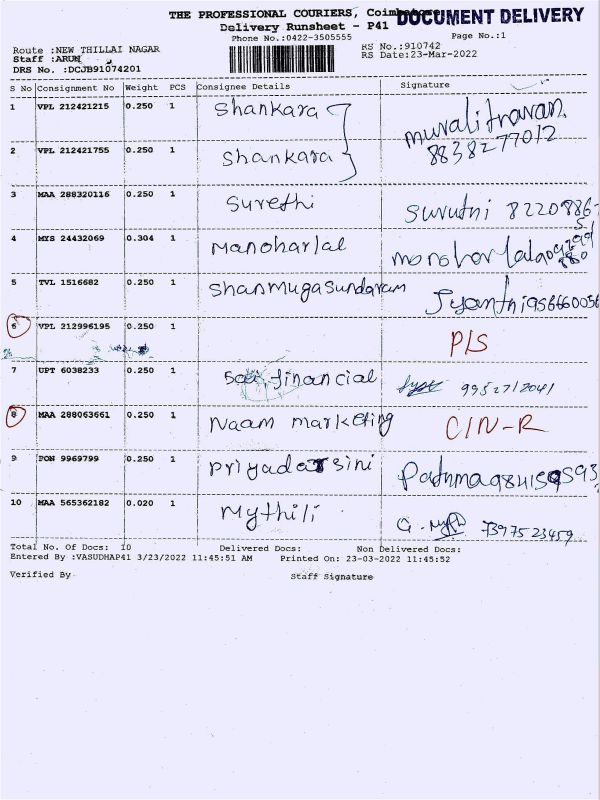 THE PROFESSIONAL COURIERS, Coimbatore
DOCUMENT DELIVERY
Delivery Runsheet - P41
Phone No.:0422-3505555
Page No.:1
Route :NEW THILLAI NAGAR
RS No.:910742
Staff :ARUN
RS Date:23-Mar-2022
DRS No. :DCJB91074201
S No Consignment No Weight PCS Consignee Details Signature
1 VPL 212421215 0.250 1 Shankara muralitharan
2 VPL 212421755 0.250 1 Shankara 8838277012
3 MAA 288320116 0.250 1 Surethi Suruthi 8220886
4 MYS 24432069 0.304 1 Manoharlal manoharlal
5 TVL 1516682 0.250 1 Shanmugasundaram Jyanthi 956660056
6 VPL 212996195 0.250 1 P/S
7 UPT 6038233 0.250 1 Sai financial 9952712041
8 MAA 288063661 0.250 1 Naam marketing C/N-R
9 PON 9969799 0.250 1 Priyadarsini Padma
10 MAA 565362182 0.020 1 Mythili G. 7397523459
Total No. Of Docs: 10 Delivered Docs: Non Delivered Docs:
Entered By :VASUDHAP41 3/23/2022 11:45:51 AM Printed On: 23-03-2022 11:45:52
Verified By Staff Signature